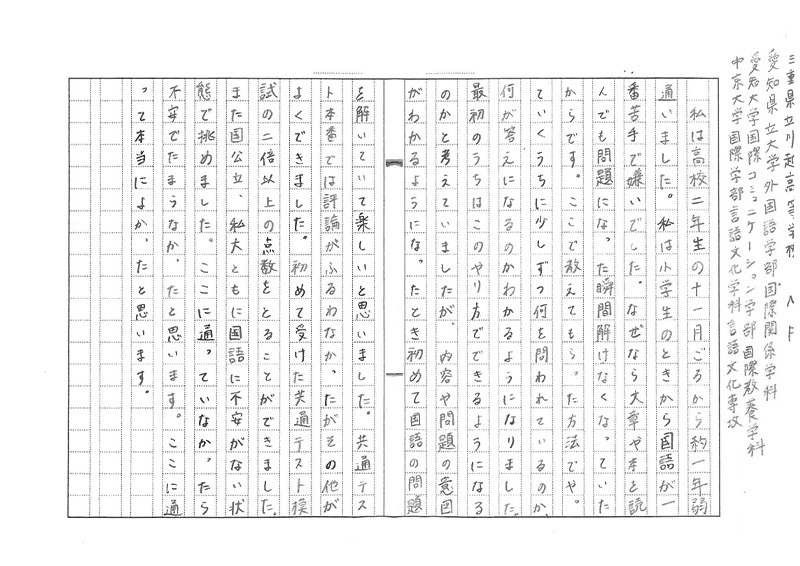 三重県立川越高等学校 N.F
愛知県立大学外国語学部国際関係学科
愛知大学国際コミュニケーション学部国際教養学科
中京大学国際学部言語文化学科言語文化専攻
私は高校二年生の十一月ごろから約一年弱
通いました。私は小学生のときから国語が一
番苦手で嫌いでした。なぜなら文章や本を読
んでも問題になった瞬間解けなくなっていた
からです。ここで教えてもらった方法でや
っていくうちに少しずつ何を問われているのか、
何が答えになるのかわかるようになりました。
最初のうちはこのやり方でできるようになる
のかと考えていましたが、内容や問題の意図
がわかるようになったとき初めて国語の問題
を解いていて楽しいと思いました。共通テス
ト本番では評論がふるわなかったがその他が
よくできました。初めて受けた共通テスト模
試の二倍以上の点数をとることができました。
また国公立、私大ともに国語に不安がない状
態で挑めました。ここに通っていなかったら
不安でたまらなかったと思います。ここに通
って本当によかったと思います。